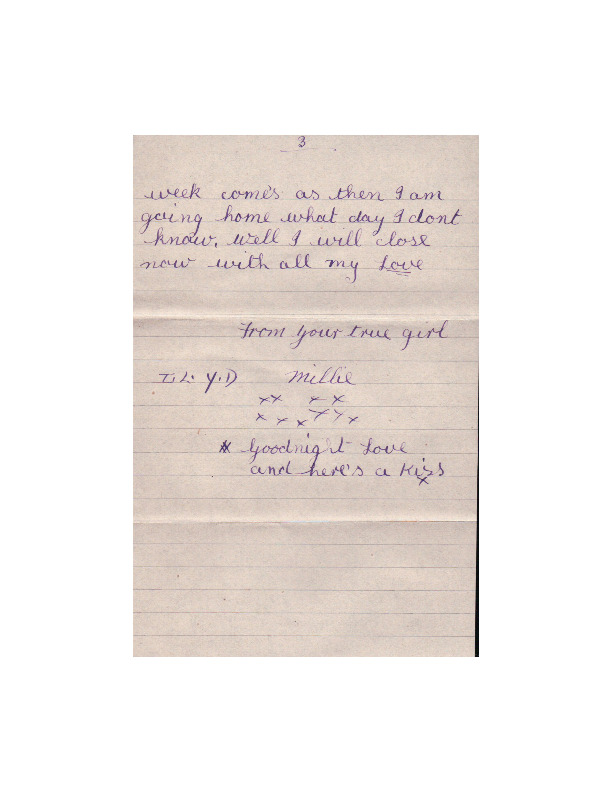 3
week come's as then I am
going home what day I dont
know. Well I will close
now with all my Love
From your true girl
I. L. Y. D Millie
xx x x
x x x x x x
x Goodnight Love
and here's a Kiss
x